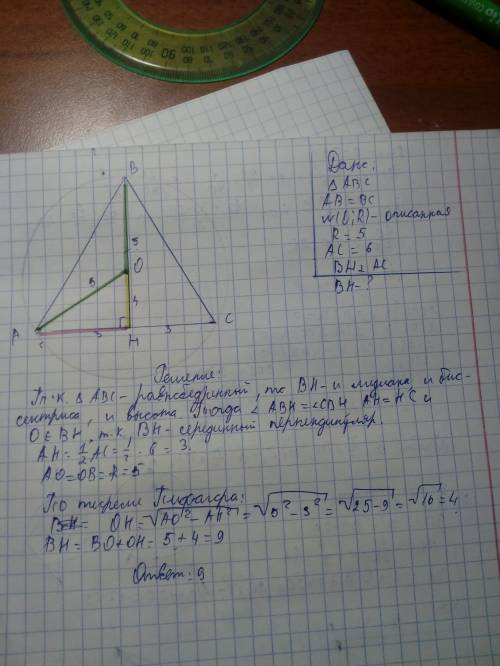 B
5
O
5
4
A
C
3
H
3
Дано:
Δ ABC
AB = BC
w(O; R) - описанная
R = 5
AC = 6
BH ⊥ AC
BH - ?
Решение:
Т.к. Δ ABC - равнобедренный, то BH - и медиана, и бис-
сектриса, и высота. Тогда ∠ ABH = ∠CBH AH = HC и
O ∈ BH, т.к. BH - серединный перпендикуляр.
AH = 1/2 AC = 1/2 · 6 = 3.
AO = OB = R = 5
По теореме Пифагора:
OH = √AO² - AH² = √5² - 3² = √25 - 9 = √16 = 4
BH = BO + OH = 5 + 4 = 9
Ответ: 9
90